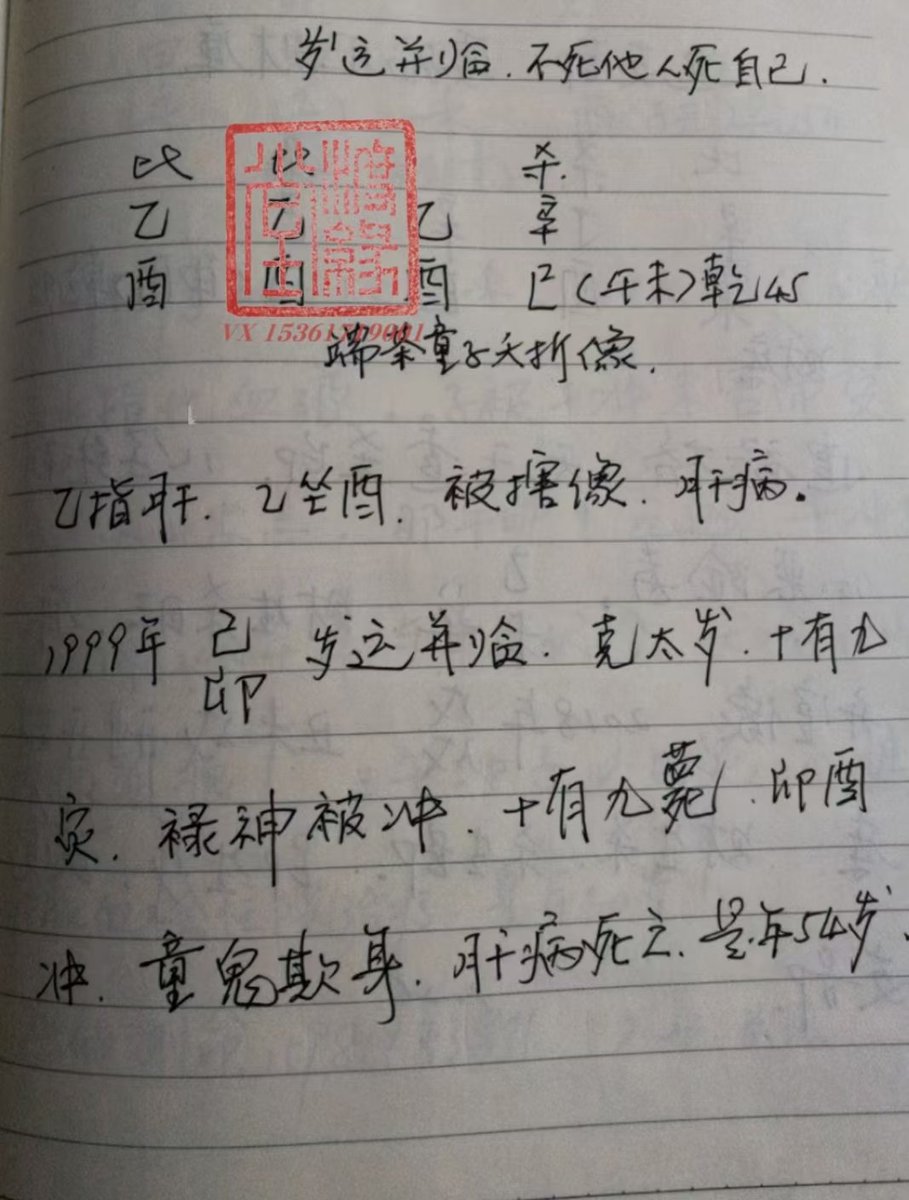 岁运并临.不死他人死自己.
比 比 杀.
乙 乙 乙 辛
酉 酉 酉 巳(午未)乾45
VX 15361719001
端茶童子夭折像.
乙指肝. 乙坐酉. 被掐像. 肝病。
1999年 己卯 岁运并临. 克太岁. 十有九
灾. 禄神被冲. 十有九薨. 卯酉
冲. 童鬼欺身. 肝病死亡. 是年54岁、